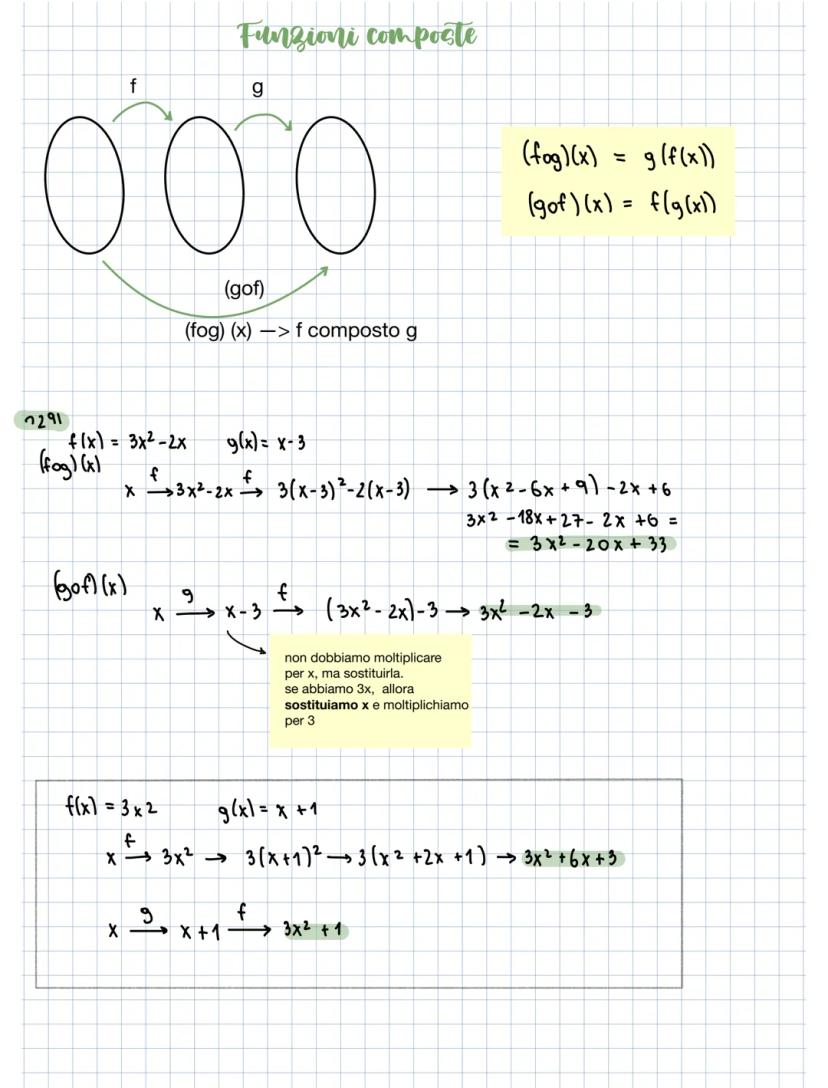 Funzioni composte
f g
(fog)(x) = g(f(x))
(gof)(x) = f(g(x))
(gof)
(fog) (x) —> f composto g
n291
f(x) = 3x² -2x g(x) = x-3
(fog)(x)
x →f 3x²-2x →f 3(x-3)²-2(x-3) → 3(x²-6x+9) -2x +6
3x² -18x+27- 2x +6 =
= 3x² - 20x + 33
(gof)(x)
x →g x-3 →f (3x²- 2x)-3 → 3x² -2x -3
non dobbiamo moltiplicare
per x, ma sostituirla.
se abbiamo 3x, allora
sostituiamo x e moltiplichiamo
per 3
f(x) = 3x2 g(x) = x +1
x →f 3x² → 3(x+1)² → 3(x² +2x +1) → 3x² +6x+3
x →g x+1 →f 3x² +1